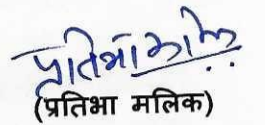 प्रतिभा मलिक
(प्रतिभा मलिक)